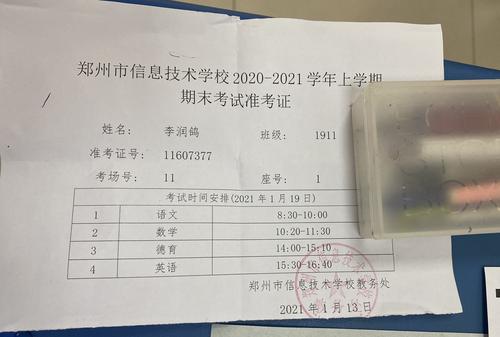 郑州市信息技术学校 2020-2021 学年上学期
期末考试准考证
姓名: 李润鸽 班级: 1911
准考证号: 11607377
考场号: 11 座号: 1
考试时间安排(2021 年 1 月 19 日)
1 语文 8:30-10:00
2 数学 10:20-11:30
3 德育 14:00-15:10
4 英语 15:30-16:40
郑州市信息技术学校教务处
2021 年 1 月 13 日